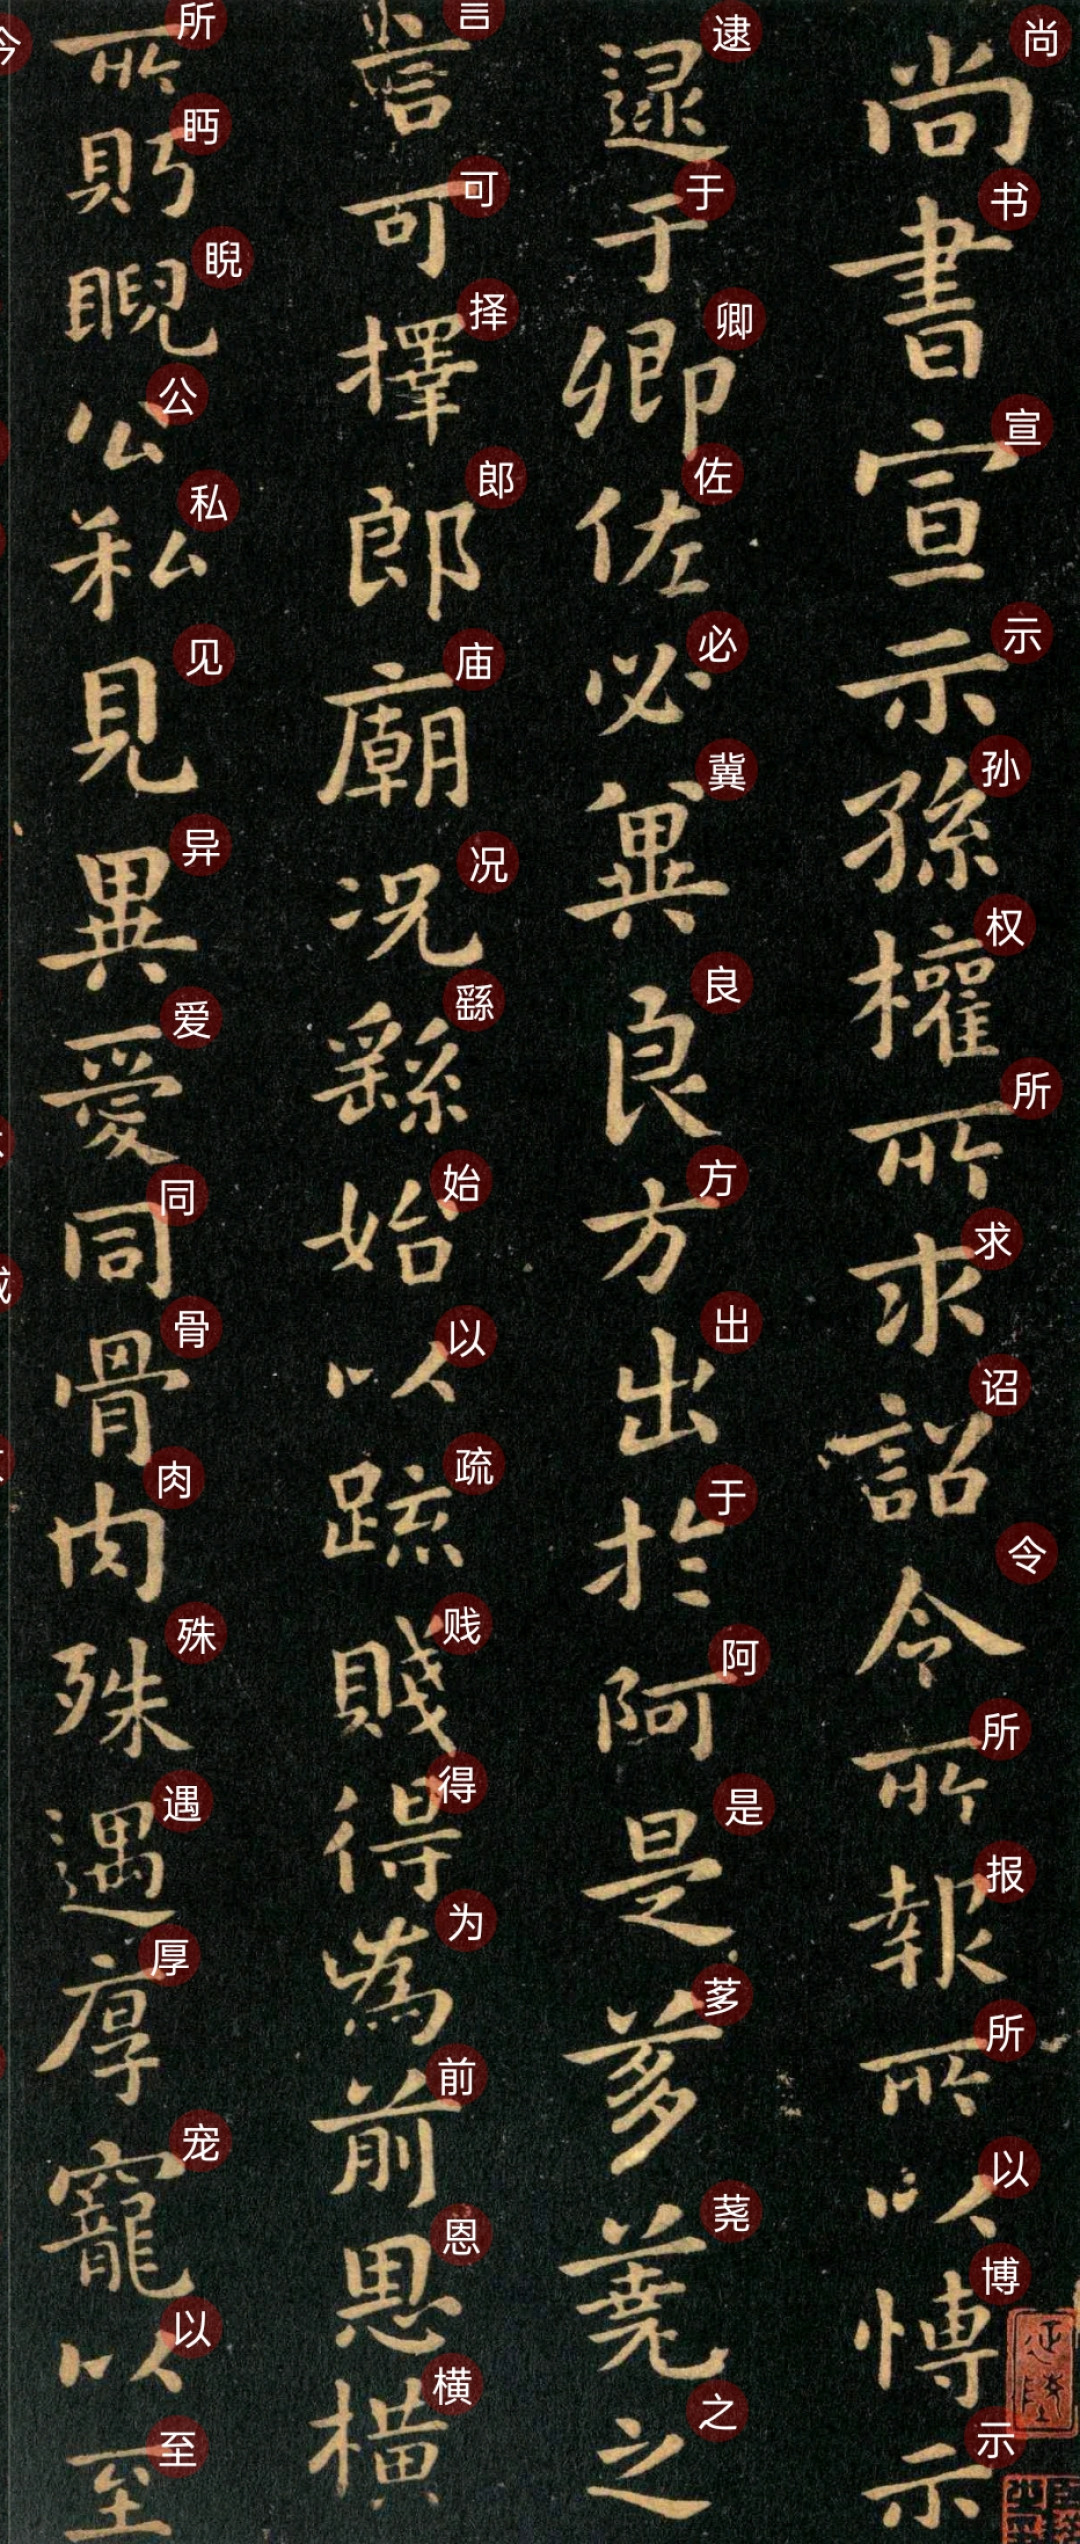 尚書宣示孫權所求詔令所報所以博示
逮于卿佐必冀良方出於阿是芻蕘之
言可擇郎廟況繇始以疏賤得為前恩橫
所眄睨公私見異愛同骨肉殊遇厚寵以至
尚书宣示孙权所求诏令所报所以博示
逮于卿佐必冀良方出于阿是茤荛之
言可择郎庙况繇始以疏贱得为前恩横
所眄睨公私见异爱同骨肉殊遇厚宠以至
今